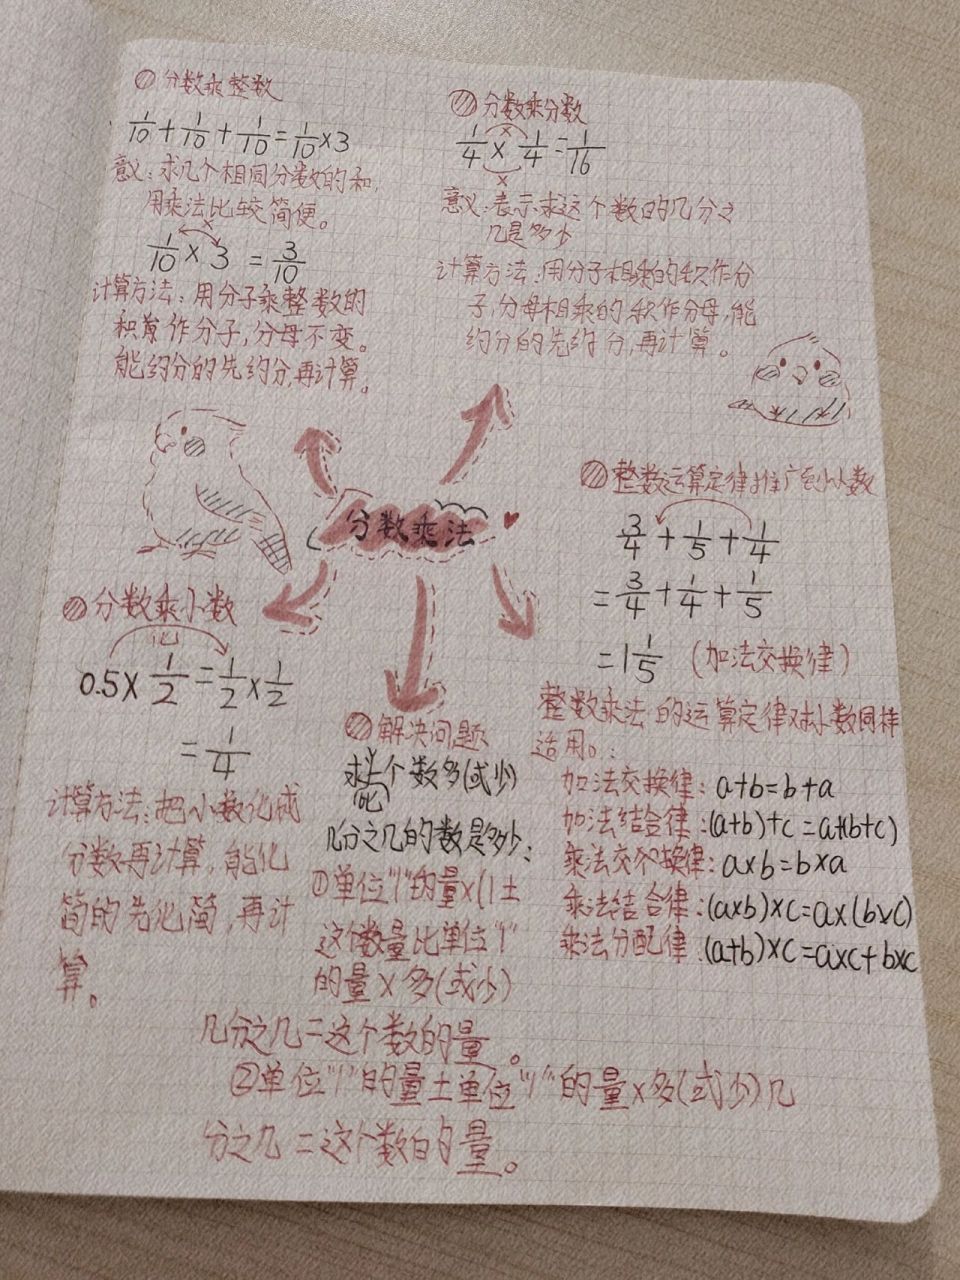 分数乘整数
1/10+1/10+1/10=1/10×3
意义:求几个相同分数的和,
用乘法比较简便。
1/10×3=3/10
计算方法:用分子乘整数的
积作分子,分母不变。
能约分的先约分,再计算。
分数乘分数
1/4×1/4=1/16
意义:表示求这个数的几分之
几是多少
计算方法:用分子相乘的积作分
子,分母相乘的积作分母,能
约分的先约分,再计算。
分数乘法
分数乘小数
化
0.5×1/2=1/2×1/2
=1/4
计算方法:把小数化成
分数再计算,能化
简的先化简,再计
算。
整数运算定律推广到小数
3/4+1/5+1/4
=3/4+1/4+1/5
=1 1/5 (加法交换律)
整数乘法的运算定律对小数同样
适用。:
加法交换律:a+b=b+a
加法结合律:(a+b)+c=a+(b+c)
乘法交换律:a×b=b×a
乘法结合律:(a×b)×c=a×(b×c)
乘法分配律:(a+b)×c=a×c+b×c
解决问题
求比一个数多(或少)
几分之几的数是多少:
①单位"1"的量×(1±
这个数量比单位"1"
的量×多(或少)
几分之几=这个数的量。
②单位"1"的量±单位"1"的量×多(或少)几
分之几=这个数的量。